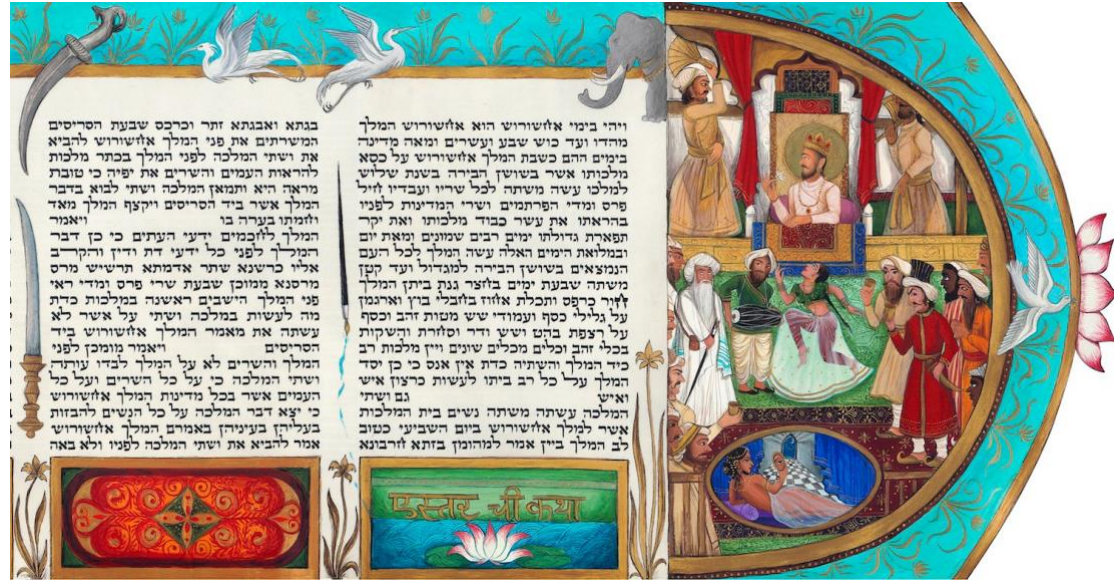 ויהי בימי אחשורוש הוא אחשורוש המלך
מהדו ועד כוש שבע ועשרים ומאה מדינה
בימים ההם כשבת המלך אחשורוש על כסא
מלכותו אשר בשושן הבירה בשנת שלוש
למלכו עשה משתה לכל שריו ועבדיו חיל
פרס ומדי הפרתמים ושרי המדינות לפניו
בהראתו את עשר כבוד מלכותו ואת יקר
תפארת גדולתו ימים רבים שמונים ומאת יום
ובמלואת הימים האלה עשה המלך לכל העם
הנמצאים בשושן הבירה למגדול ועד קטן
משתה שבעת ימים בחצר גנת ביתן המלך
חור כרפס ותכלת אחוז בחבלי בוץ וארגמן
על גלילי כסף ועמודי שש מטות זהב וכסף
על רצפת בהט ושש ודר וסחרת והשקות
בכלי זהב וכלים מכלים שונים ויין מלכות רב
כיד המלך והשתיה כדת אין אנס כי כן יסד
המלך על כל רב ביתו לעשות כרצון איש
ואיש גם ושתי
המלכה עשתה משתה נשים בית המלכות
אשר למלך אחשורוש ביום השביעי כטוב
לב המלך ביין אמר למהומן בזתא חרבונא
בגתא ואבגתא זתר וכרכס שבעת הסריסים
המשרתים את פני המלך אחשורוש להביא
את ושתי המלכה לפני המלך בכתר מלכות
להראות העמים והשרים את יפיה כי טובת
מראה היא ותמאן המלכה ושתי לבוא בדבר
המלך אשר ביד הסריסים ויקצף המלך מאד
וחמתו בערה בו ויאמר
המלך לחכמים ידעי העתים כי כן דבר
המלך לפני כל ידעי דת ודין והקרב
אליו כרשנא שתר אדמתא תרשיש מרס
מרסנא ממוכן שבעת שרי פרס ומדי ראי
פני המלך הישבים ראשנה במלכות כדת
מה לעשות במלכה ושתי על אשר לא
עשתה את מאמר המלך אחשורוש ביד
הסריסים ויאמר מומכן לפני
המלך והשרים לא על המלך לבדו עותה
ושתי המלכה כי על כל השרים ועל כל
העמים אשר בכל מדינות המלך אחשורוש
כי יצא דבר המלכה על כל הנשים להבזות
בעליהן בעיניהן באמרם המלך אחשורוש
אמר להביא את ושתי המלכה לפניו ולא באה
एस्तर ची कथा